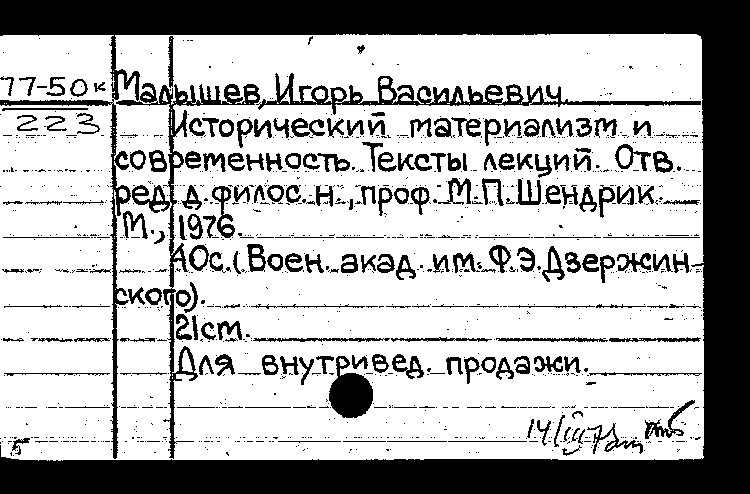 77-50к Малышев, Игорь Васильевич
223 Исторический материализм и
современность. Тексты лекций. Отв.
ред. д. филос. н., проф. М.П. Шендрик.
М., 1976.
40с. (Воен. акад. им. Ф.Э. Дзержин-
ского).
21cm.
Для внутривед. продажи.
5